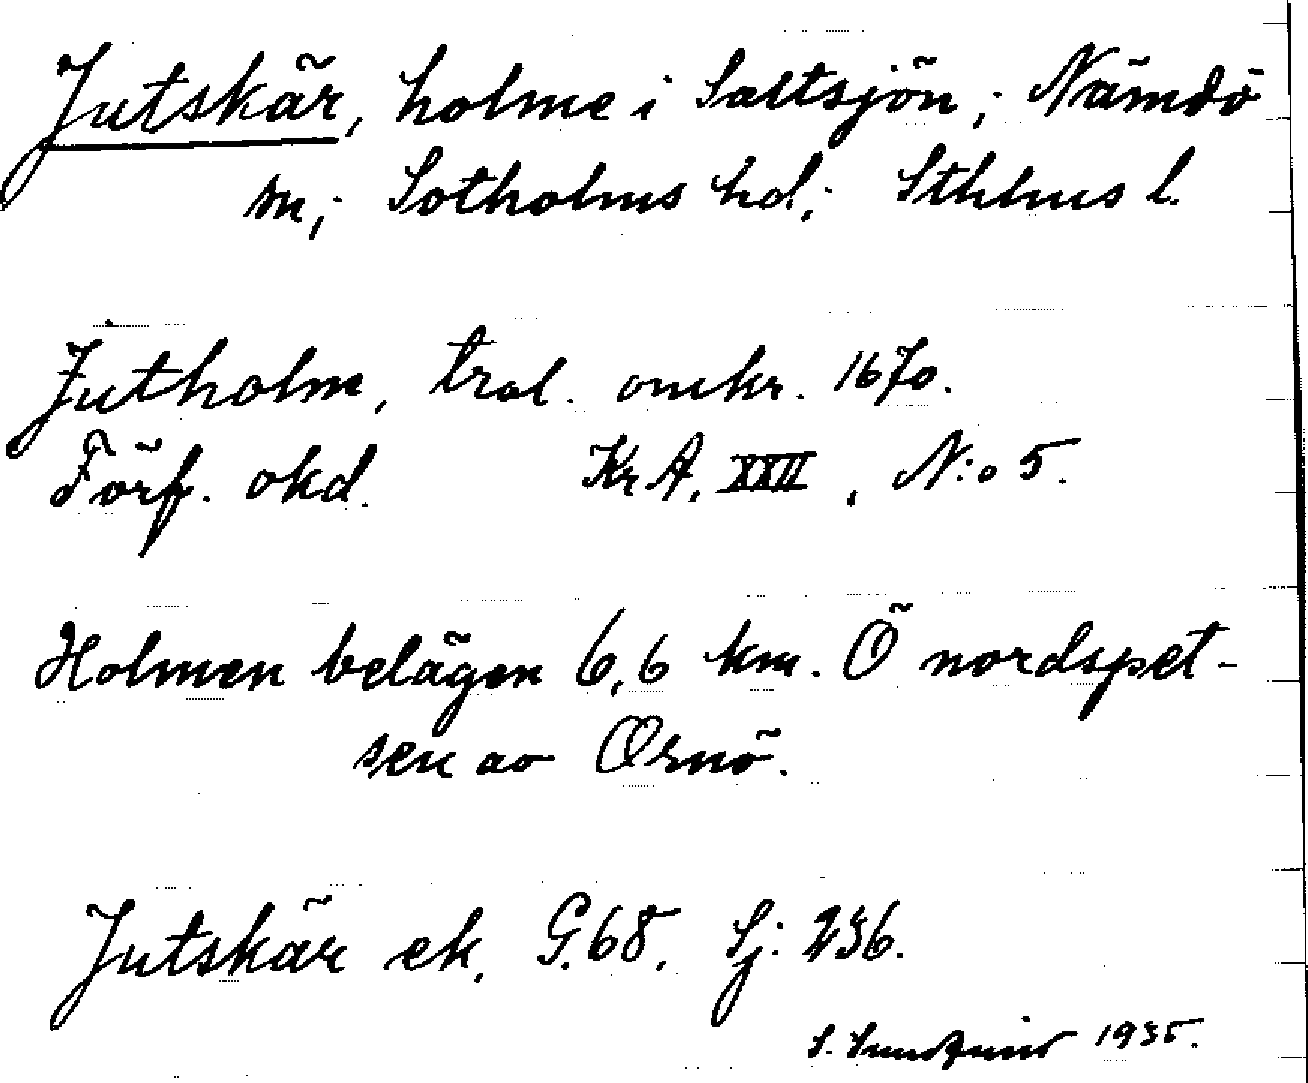 Jutskär, holme i Saltsjön; Nämdö
sn; Sotholms hd; Sthlms l.
Jutholm, tral. omkr. 1670.
Förf. okd. KrA. XXII, N:o 5.
Holmen belägen 6,6 km. Ö nordspet-
sen av Ornö.
Jutskär ek. G.68. Sj: 236.
S. 1935.